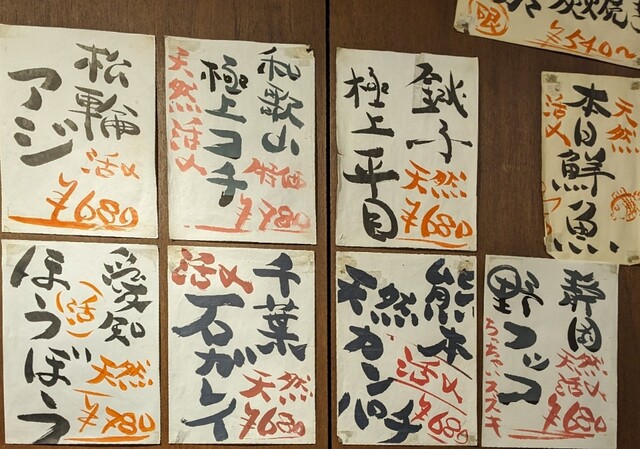 松輪
アジ
活〆
¥680
和歌山
極上コチ
天然活〆
特価
¥780
銚子
極上平目
天然
¥680
¥540〜
本日鮮魚
天然
活〆
愛知
(活)
ほうぼう
天然
¥780
千葉
石ガレイ
活〆
天然
¥680
熊本
天然カンパチ
活〆
¥680
静岡
野フッコ
天然
活〆
¥680